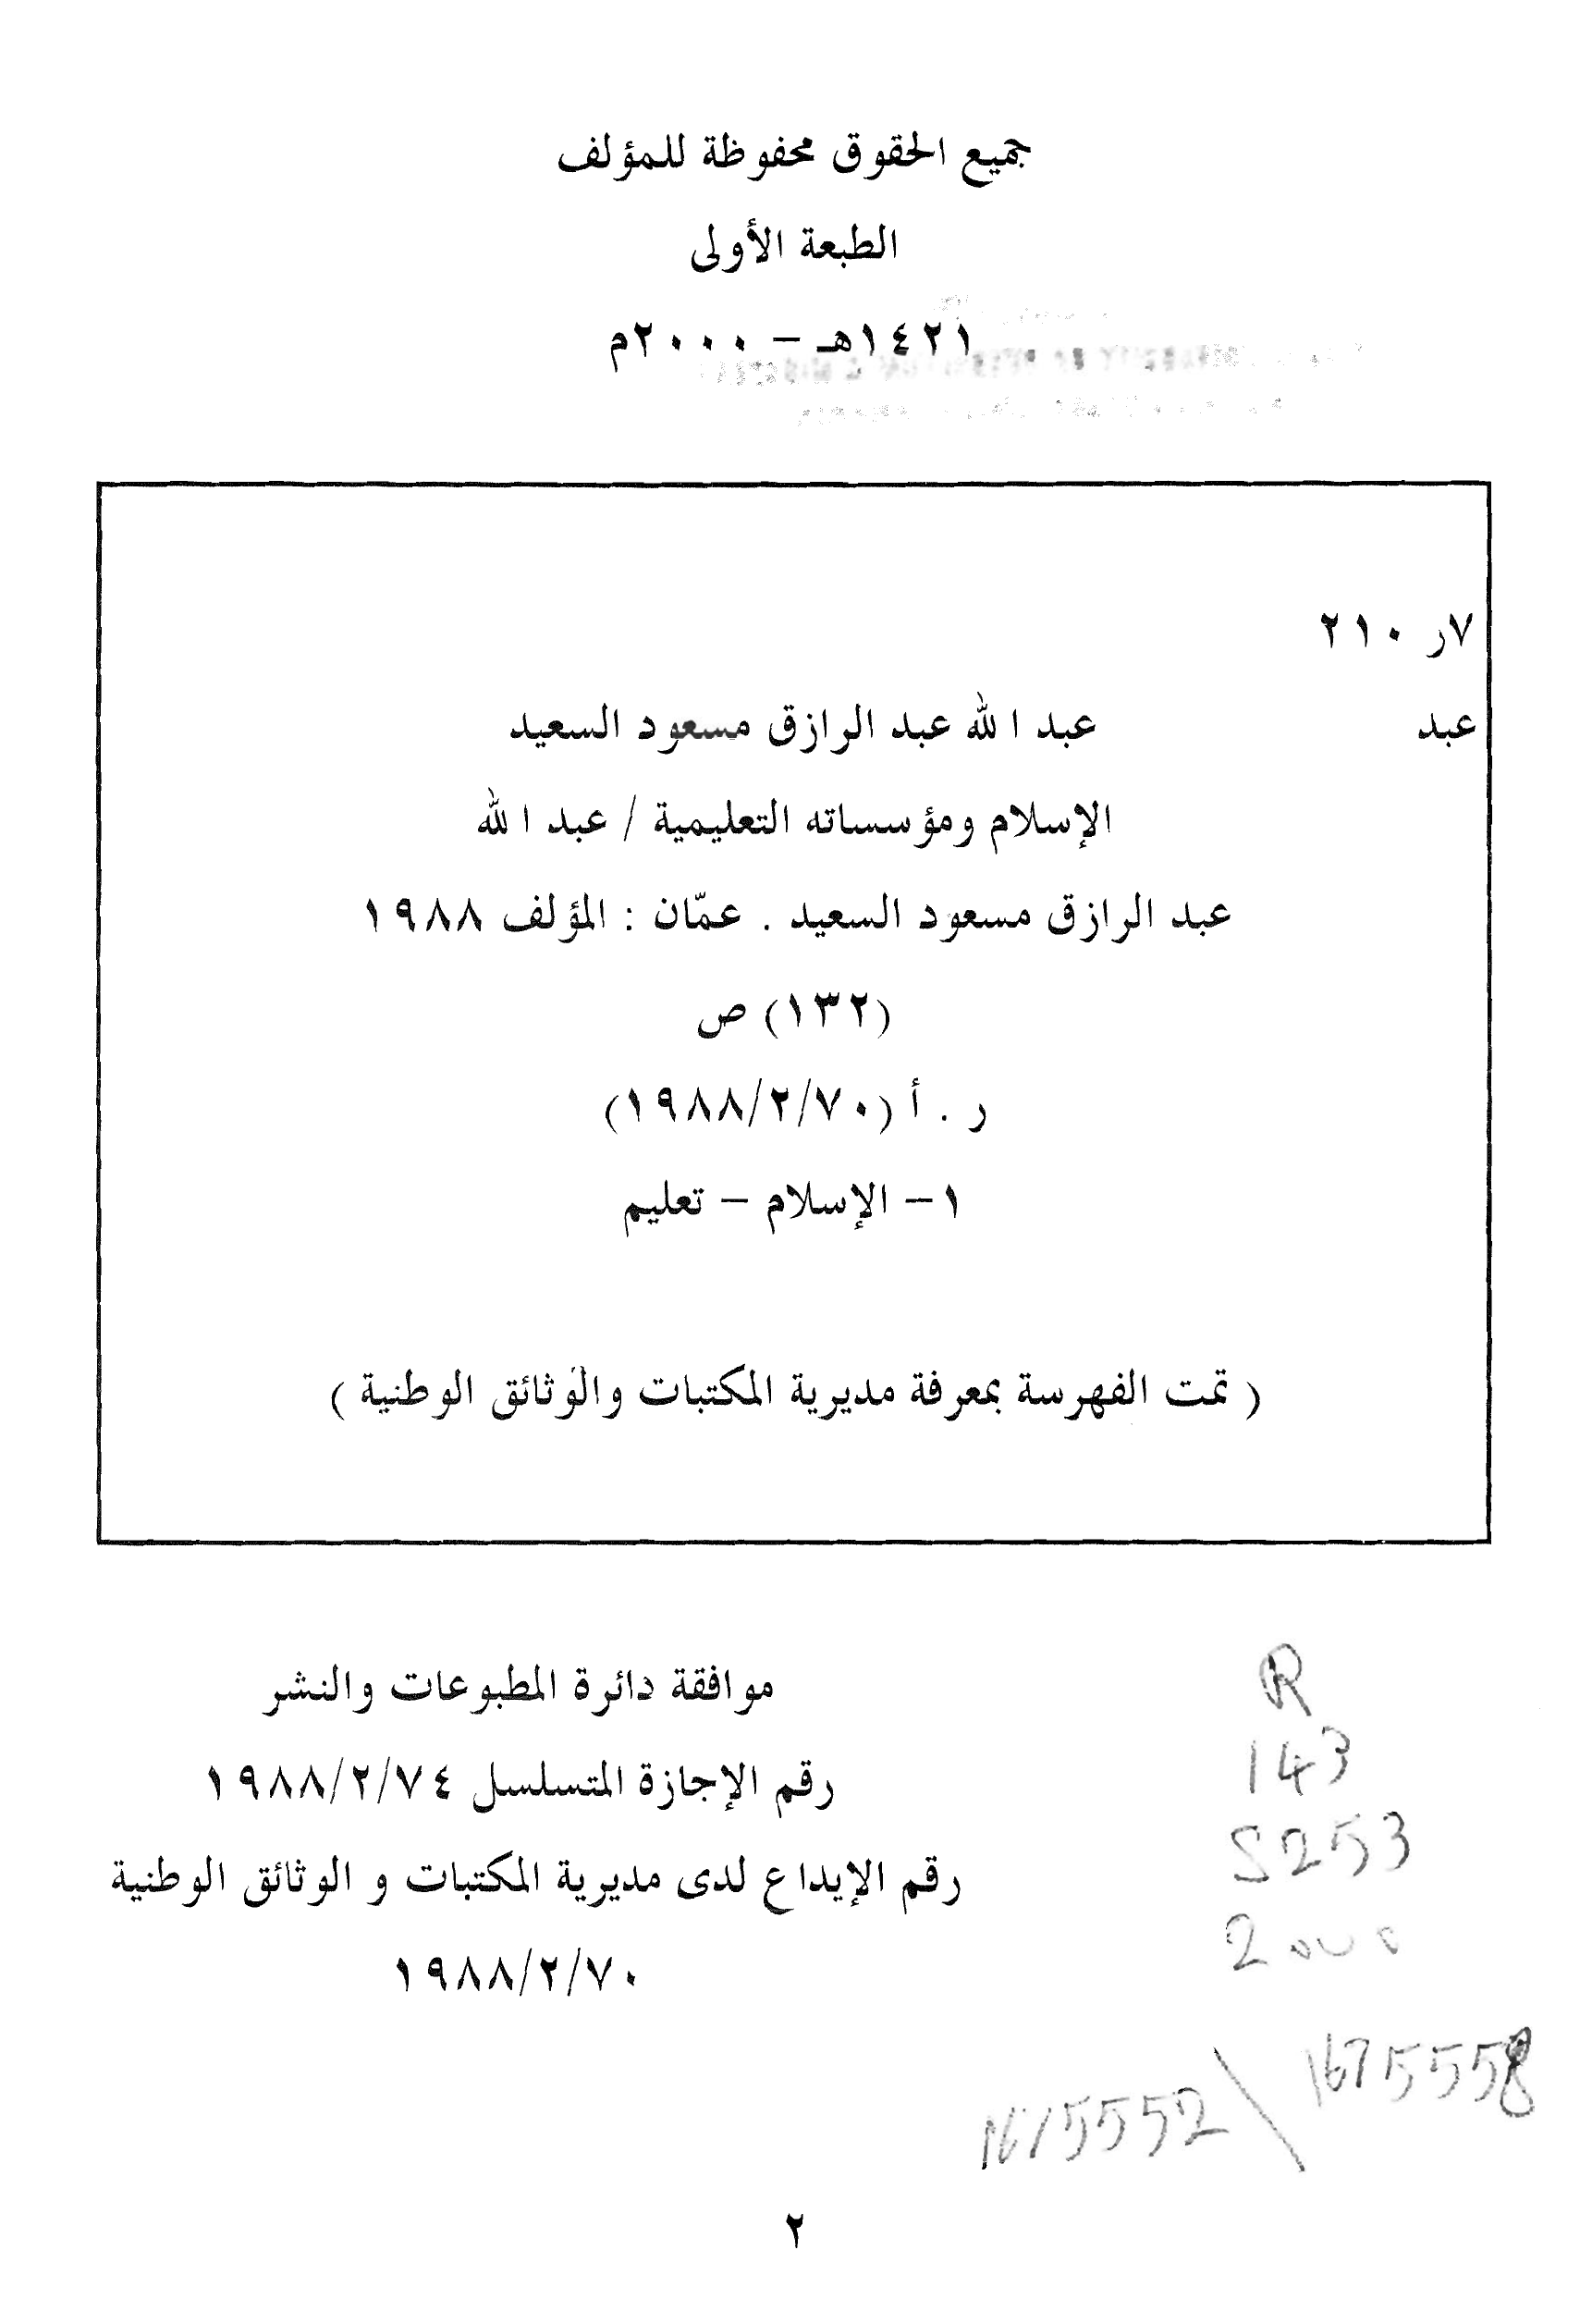 جميع الحقوق محفوظة للمؤلف
الطبعة الأولى
١٤٢١هـ – ٢٠٠٠م
٧ر ٢١٠
عبد عبد الله عبد الرازق مسعود السعيد
الإسلام ومؤسساته التعليمية / عبد الله
عبد الرازق مسعود السعيد . عمّان : المؤلف ١٩٨٨
(١٣٢) ص
ر . أ (١٩٨٨/٢/٧٠)
١- الإسلام – تعليم
( تمت الفهرسة بمعرفة مديرية المكتبات والوثائق الوطنية )
موافقة دائرة المطبوعات والنشر
رقم الإجازة المتسلسل ١٩٨٨/٢/٧٤
رقم الإيداع لدى مديرية المكتبات و الوثائق الوطنية
١٩٨٨/٢/٧٠
R
143
S253
2000
1675552 \ 1675558
٢